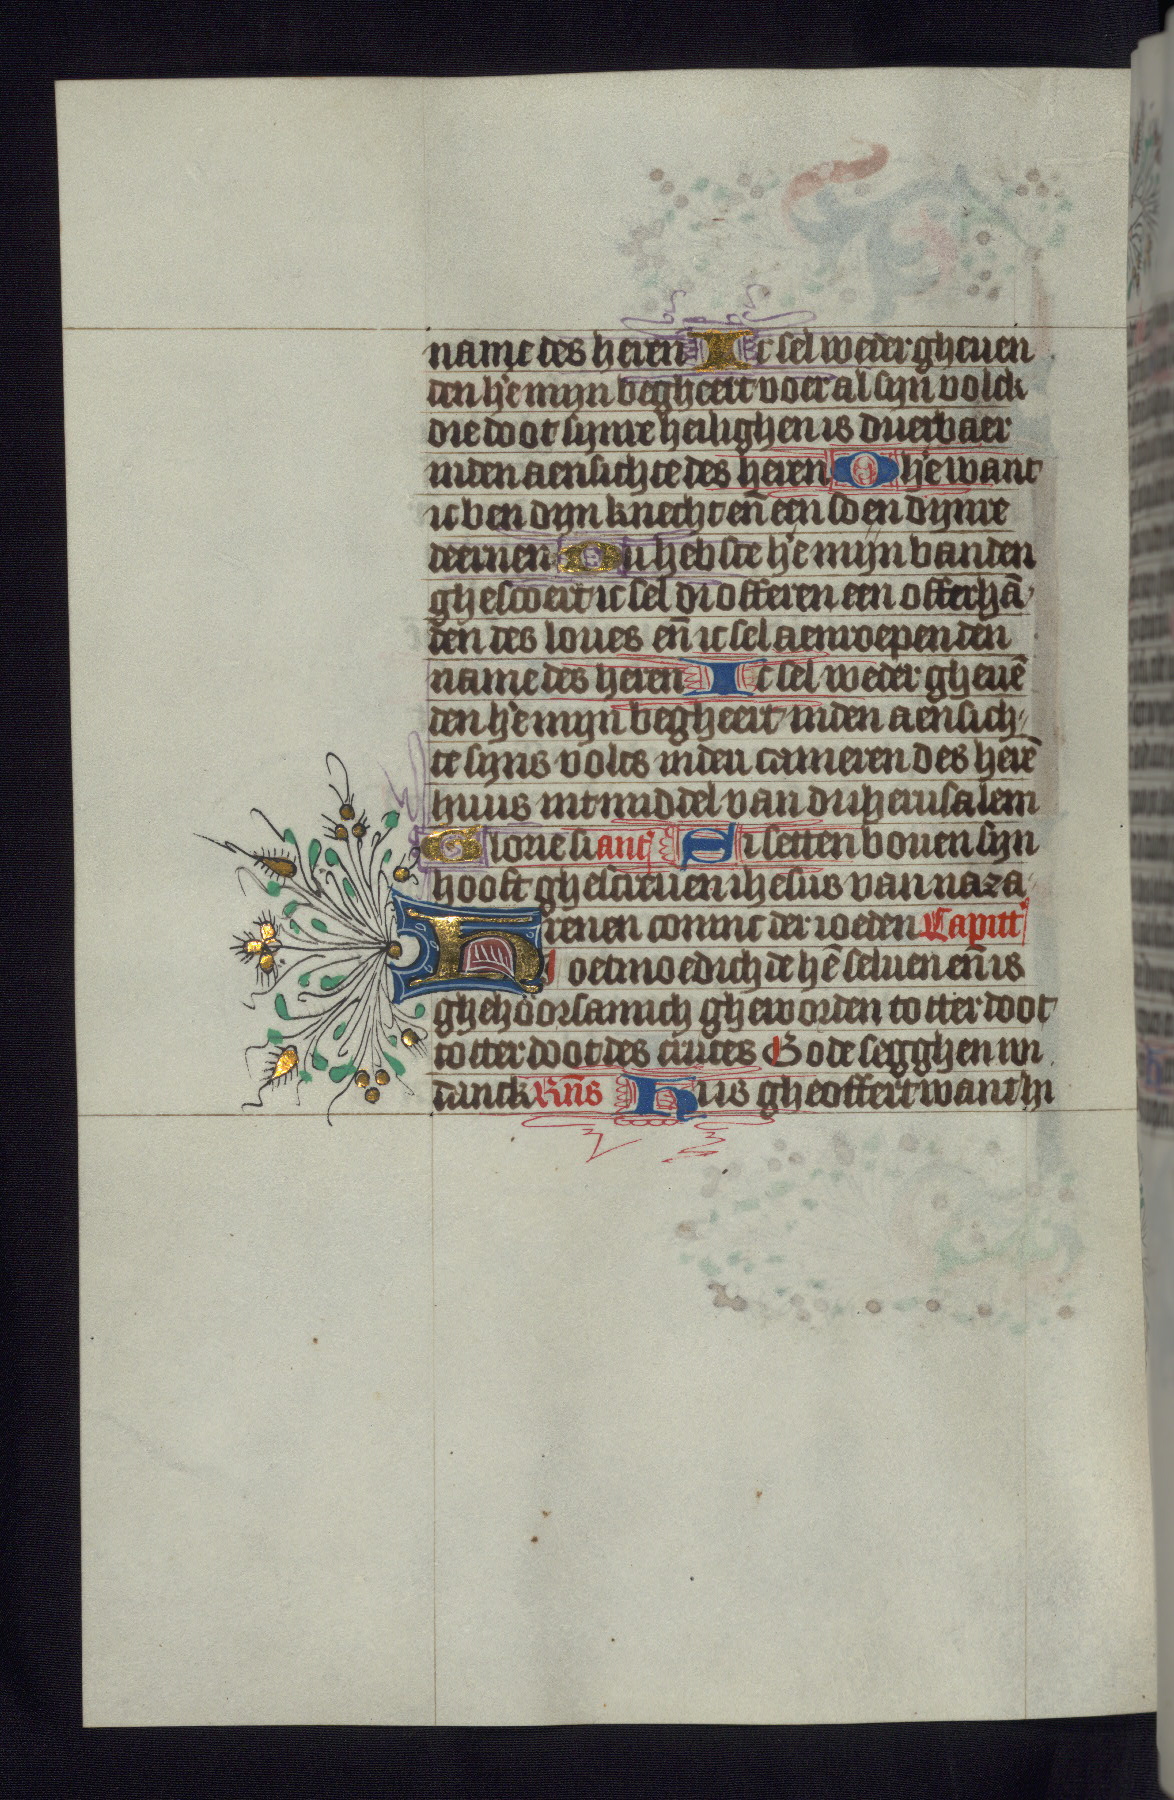 name des heren Ic sel weder gheuen
den he mijn begheert voer al sijn volck
die doot sijnre heilighen is duerbaer
inden aensichte des heren O he want
ic ben dijn knecht en̄ een soen dijnre
deernen Du hebste he mijn banden
ghescoert ic sel di offeren een offerhā
den des loues en̄ ic sel aenroepen den
name des heren Ic sel weder gheuē
den he mijn begheert inden aensich
te sijns volcs inden cameren des herē
huus int middel van di iherusalem
Glorie si ant Si setten bouen sijn
hooft ghescreuen ihesus van naza
renen coninc der ioeden Capitt
Hi oetmoedichde hē seluen en̄ is
ghehoorsamich gheworden totter doot
totter doot des cruces Gode segghen wi
danck Rn̄s Hi is gheoffert want hi